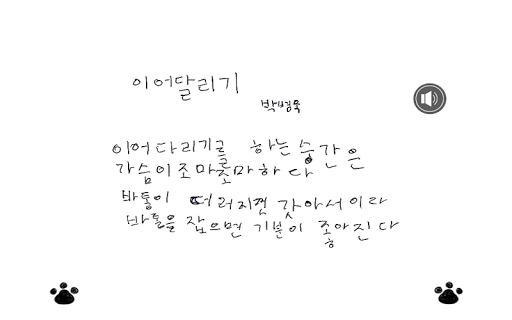 이어달리기
박병욱
이어다리기를 하는 숭간은
가슴이 조마조마하다
바통이 떠러지면 갓아서이라
바통을 잡으면 기분이 좋아진다